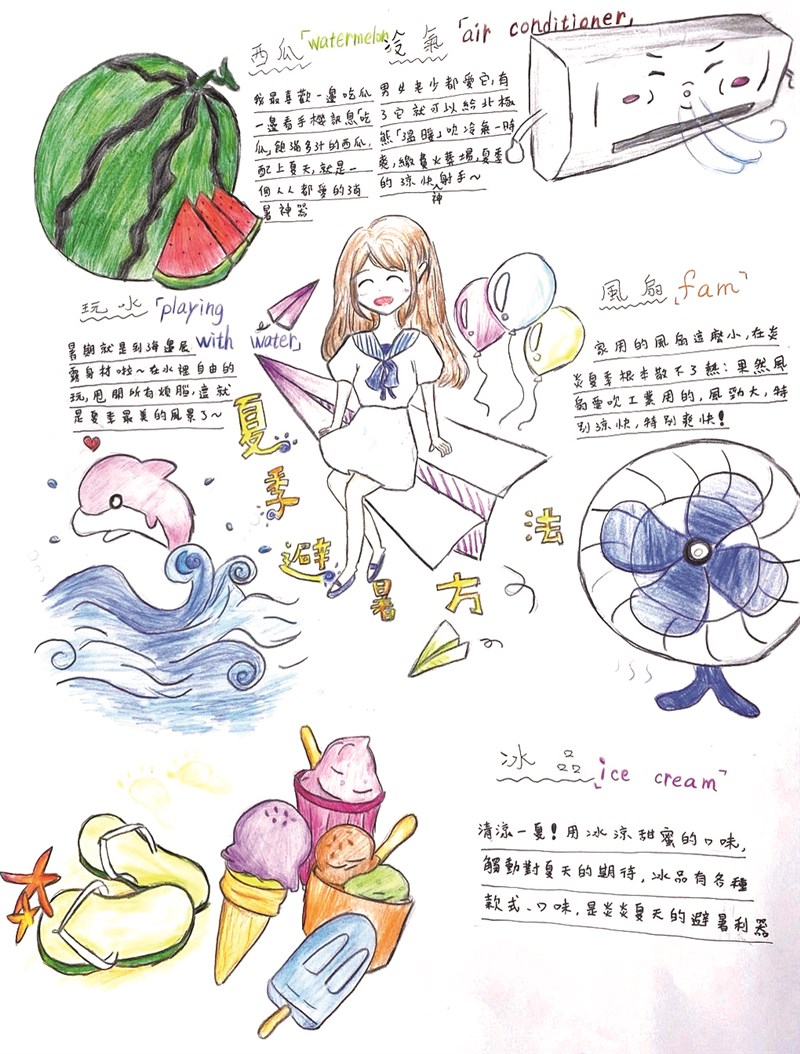 西瓜「watermelon」
我最喜歡一邊吃瓜
一邊看手機訊息「吃
瓜」飽滿多汁的西瓜,
配上夏天,就是一
個人人都愛的消
暑神器
冷氣「air conditioner」
男女老少都愛它,有
了它就可以給北極
熊「溫暖」吹冷氣一時
爽,繳費火葬場,夏季
的涼快神射手~
玩水「playing
with water」
暑期就是到海邊展
露身材啦~在水裡自由的
玩,甩開所有煩腦,這就
是夏季最美的風景了~
風扇「fam」
家用的風扇這麼小,在炎
炎夏季根本散不了熱:果然風
扇要吹工業用的,風勁大,特
別涼快,特別爽快!
夏季避暑方法
冰品「ice cream」
清涼一夏!用冰涼甜蜜的口味,
觸動對夏天的期待,冰品有各種
款式、口味,是炎炎夏天的避暑利器